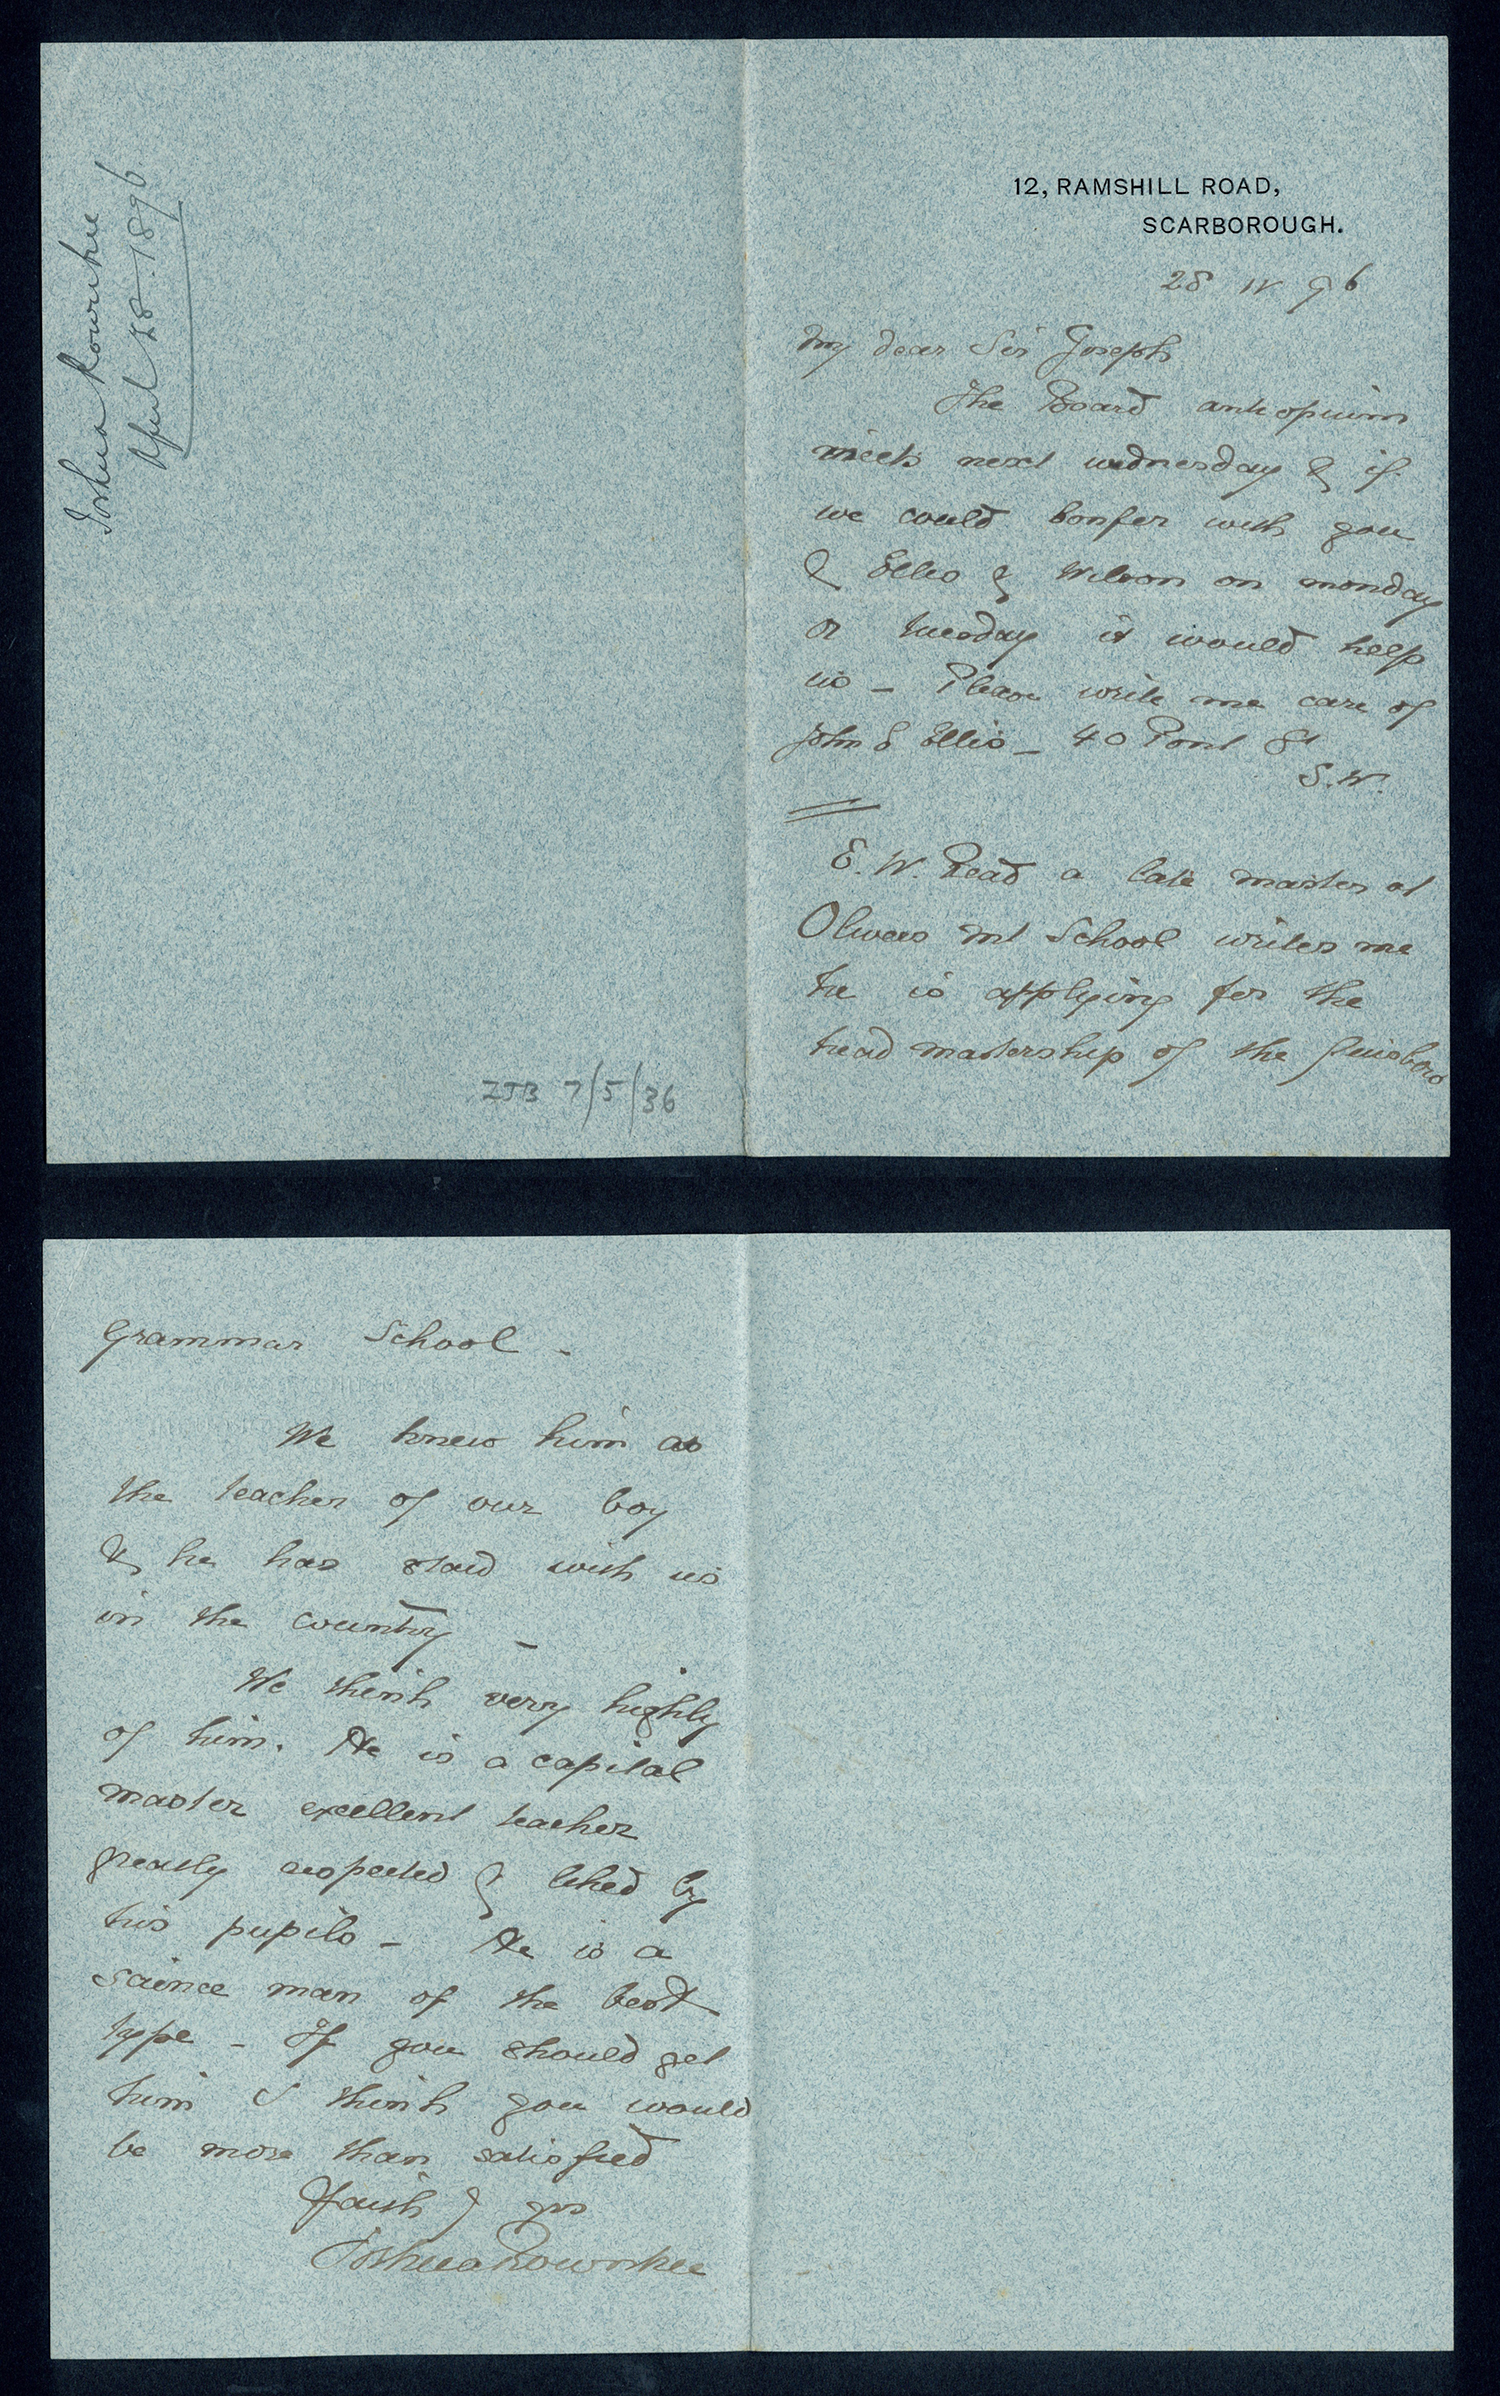 Joshua Rowntree
April 28. 1896.
ZJB 7/5/36
12, RAMSHILL ROAD,
SCARBOROUGH.
28 IV 96
My dear Sir Joseph
The Board antiopium
meets next wednesday & if
we could confer with you
& Ellis & Wilson on monday
or tuesday it would help
us - Please write me care of
John E Ellis - 40 Pont St
S.W.
E. W. Read a late master at
Olivers Mt School writes me
he is applying for the
head mastership of the Guisboro
Grammar School -
We knew him as
the teacher of our boy
& he has staid with us
in the country -
We think very highly
of him. He is a capital
master excellent teacher
greatly respected & liked by
his pupils - He is a
science man of the best
type - If you should get
him I think you would
be more than satisfied
Faith y yrs
Joshua Rowntree